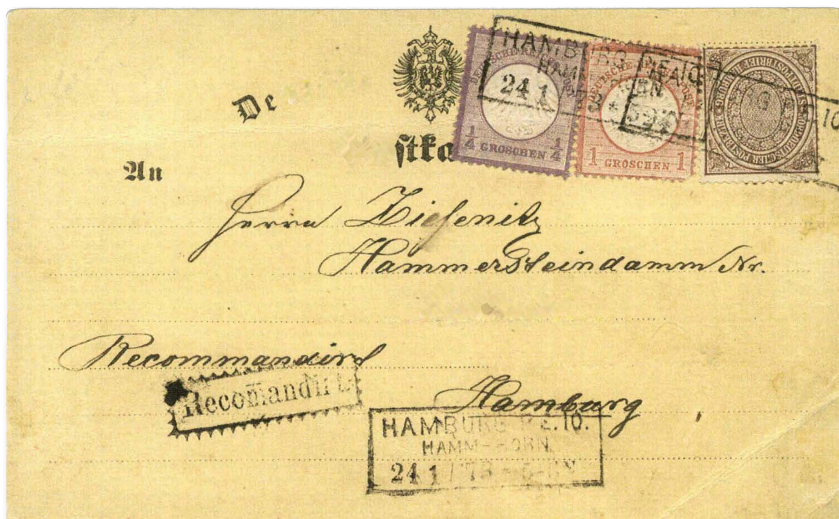 HAMBURG P.E.10.
HAMM-HORN
24 1
De
stka
¼ GROSCHEN ¼
1 GROSCHEN 1
An
Herrn Ziesenitz
Hammersteindamm Nr.
Recommandirt
Recomandirt.
Hamburg
HAMBURG P.E.10.
HAMM-HORN
24 1 / 73